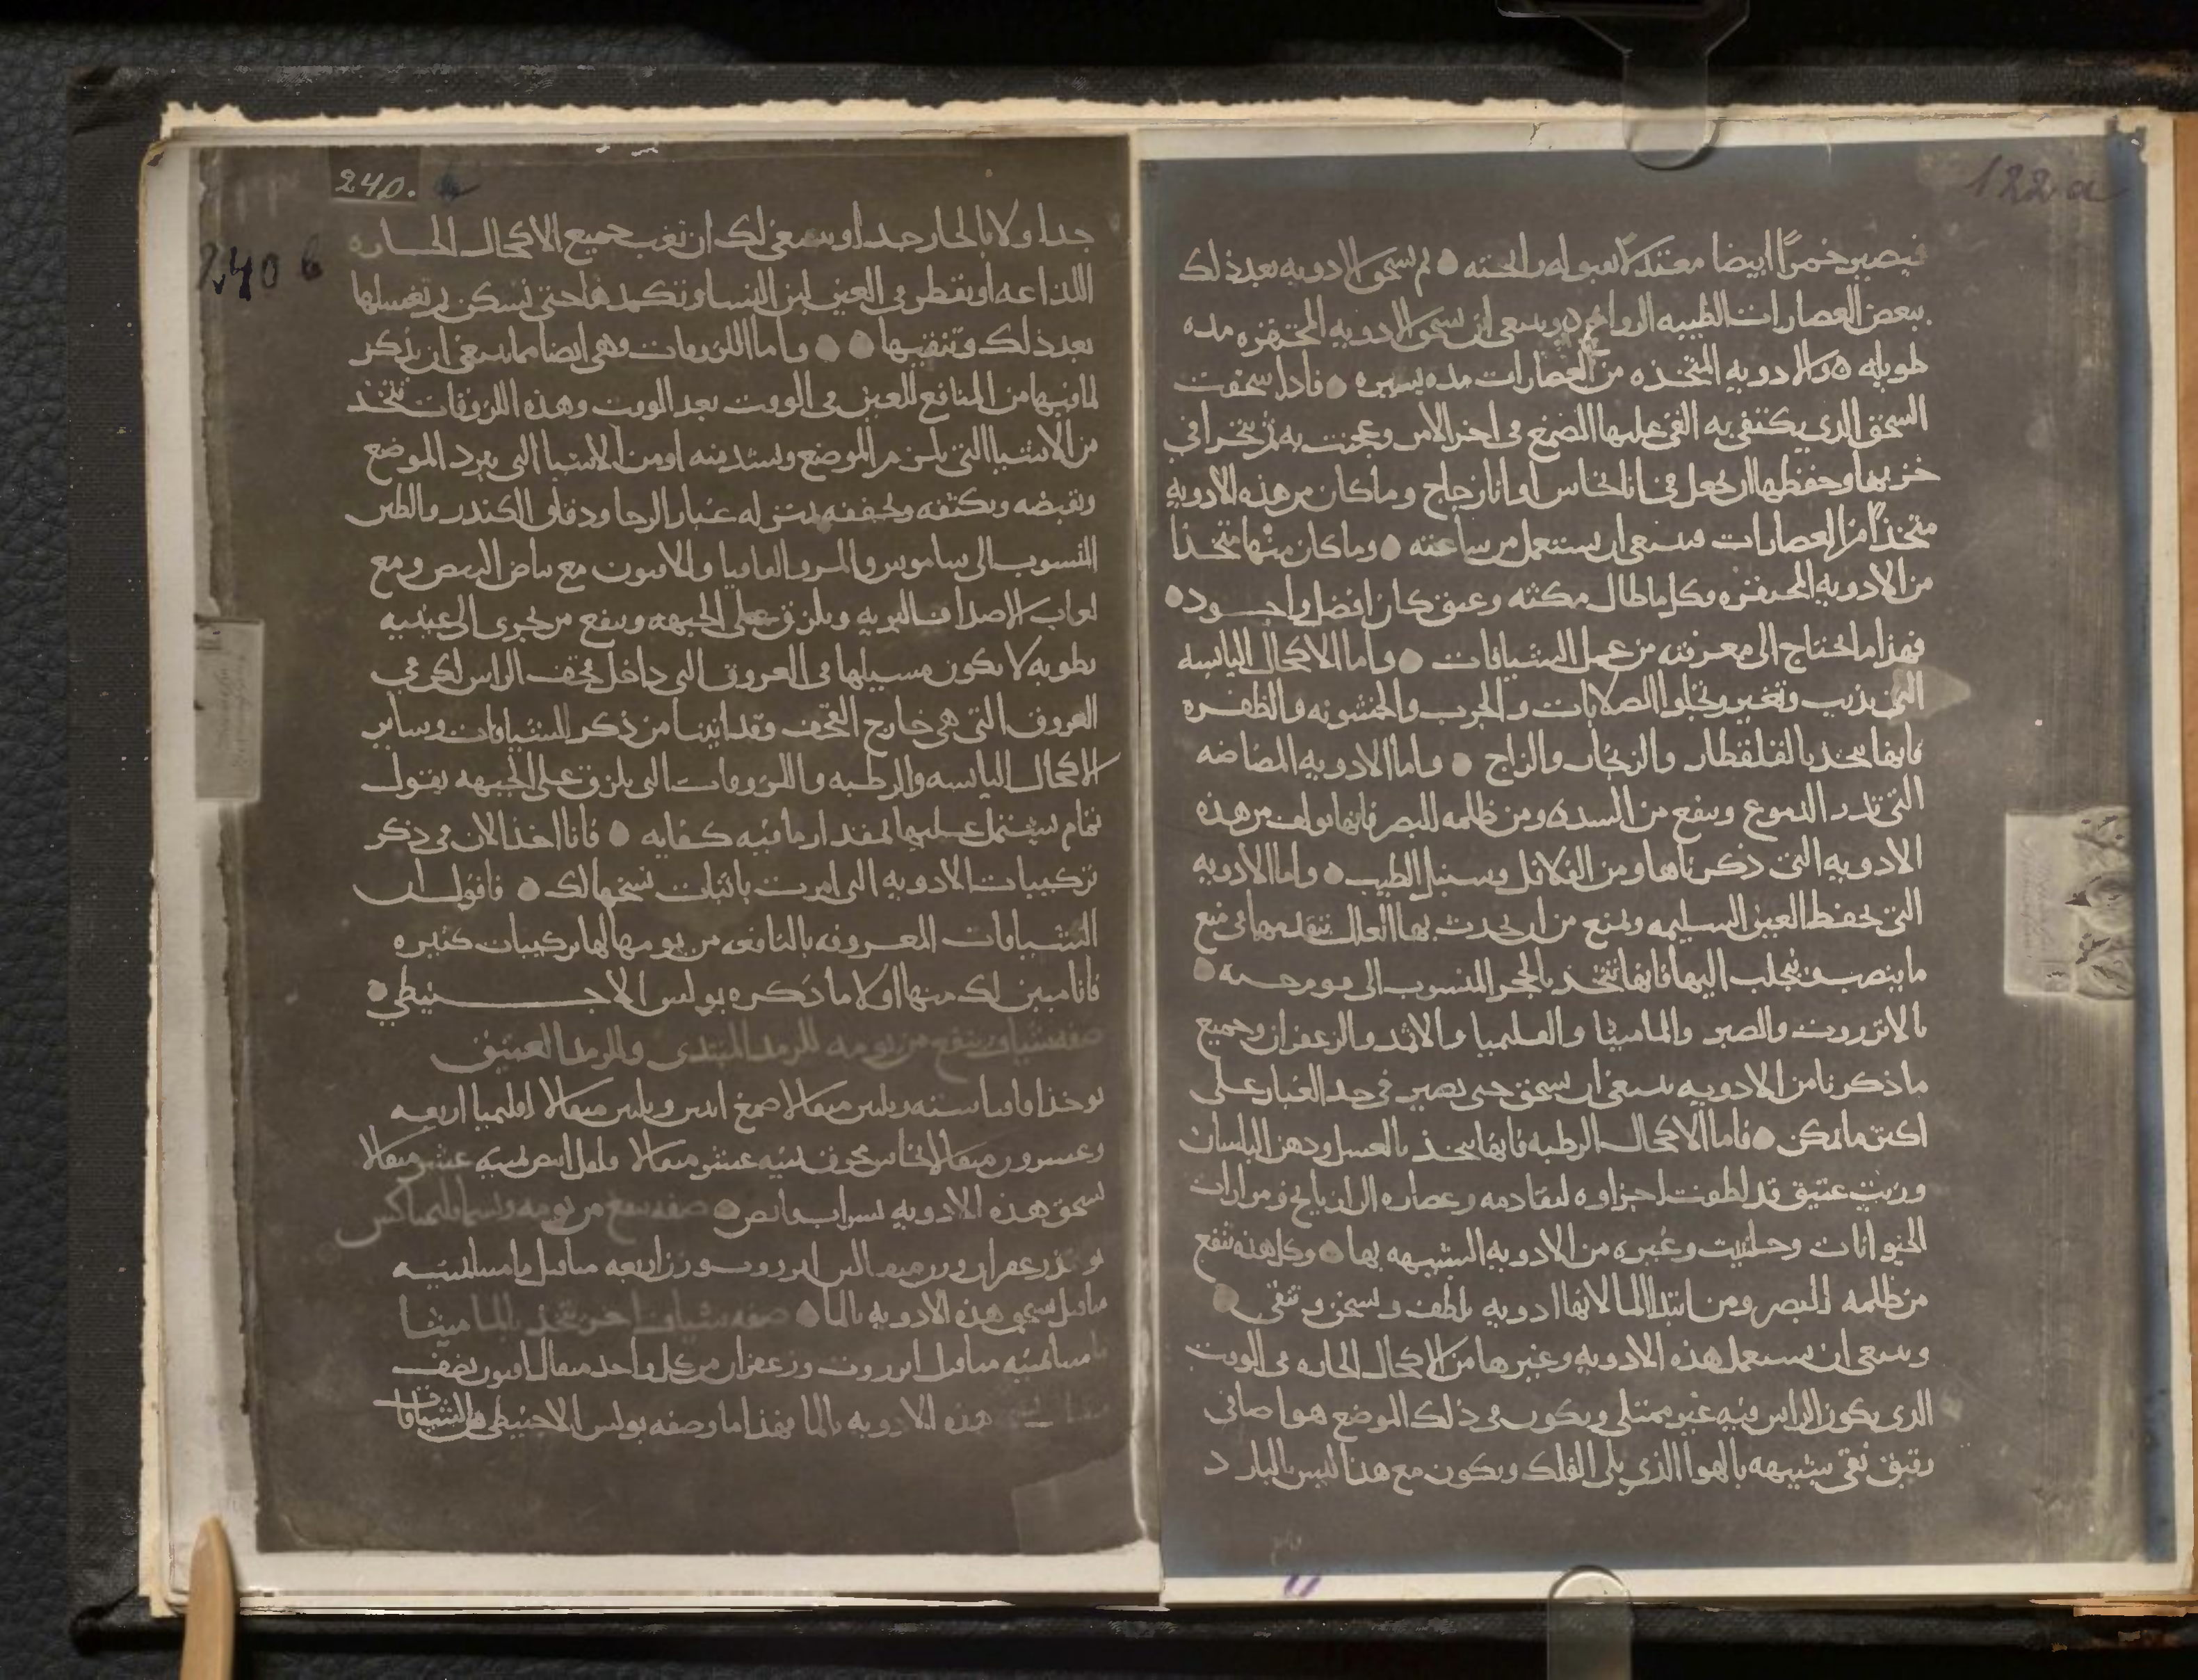 122 a
فيصير خمرًا ايضا معتدلا لقبوله رالحته ثم تسحق الادويه بعد ذلك
ببعض العصارات الطيبه الروايح وينبغى ان تسحق الادويه المحتفره مده
طويله والادويه المتخذه من العصارات مده يسيره فاذا سحقت
السحق الذى يكتفى به القى عليها الصمغ فى اخر الامر وعجنت به ثم
خزنها وحفظها ان تجعل فى انا نحاس او انا زجاج وما كان من هذه الادويه
متخذًا من العصارات فينبغى ان يستعمل من ساعته وما كان منها متخذا
من الادويه المحتفره وكلما طال مكثه وعتق كان افضل واجود
فهذا ما تحتاج الى معرفته من عمل الشيافات واما الاكحال اليابسه
التى تذيب وتغير وتجلوا الصلابات والجرب والخشونه والظفره
فانها تتخذ بالقلقطار والزنجار والزاج واما الادويه المضاضه
التى تدر الدموع وينفع من السده ومن ظلمه البصر فانها تولف من هذه
الادويه التى ذكرناها ومن الفلافل وسنبل الطيب واما الادويه
التى تحفظ العين السليمه وتمنع من ان تحدث بها العلل
ما ينصب فيجلب اليها فانها تتخذ بالحجر المنسوب الى
بالانزروت والصبر والماميثا والقليميا والاثمد والزعفران وجميع
ما ذكرنا من الادويه ينبغى ان تسحق حتى تصير فى حد الغبار على
اكثر ما يمكن فاما الاكحال الرطبه فانها تتخذ بالعسل ودهن البلسان
وزيت عتيق قد لطفت اجزاوه لتقادمه وعصاره الرازيانج ومرارات
الحيوانات وحلتيت وغيره من الادويه الشبيهه بها وكل هذه تنفع
من ظلمه البصر ومن ابتدا الما لانها ادويه تلطف وتسخن وتنقى
وينبغى ان تستعمل هذه الادويه وغيرها من الاكحال الحاره فى الوقت
الذى يكون الراس فيه غير ممتلى ويكون فى ذلك الموضع هوا صافى
رقيق نقى شبيهه بالهوا الذى يلى الفلك ويكون مع هذا ليس بالبارد
240.
240 b
جدا ولا بالحار جدا وينبغى لك ان تغب جميع الاكحال الحاره
اللذاعه او تقطر فى العين لبن النسا وتكمدها حتى تسكن ثم تغسلها
بعد ذلك وتنقيها واما اللزوقات وهى ايضا مما ينبغى ان يذكر
لما فيها من المنافع للعين فى الوقت بعد الوقت وهذه اللزوقات تتخذ
من الاشيا التى تلزم الموضع وتسدسه او من الاشيا التى تبرد الموضع
وتقبضه وتكثفه وتجففه بمنزله غبار الرحا ودقاق الكندر والطين
المنسوب الى ساموس والمر والقاقيا والافيون مع بياض البيض ومع
لعاب الاصداف البريه ويلزق على الجبهه وينفع من تجرى الى عينيه
رطوبه لا يكون مسيلها فى العروق التى داخل قحف الراس لكن فى
العروق التى هى خارج القحف وقد اتينا من ذكر الشيافات وساير
الاكحال اليابسه والرطبه واللزوقات التى يلزق على الجبهه بقول
تمام يشتمل عليها بمقدار ما فيه كفايه فانا اخذ الان فى ذكر
تركيبات الادويه التى امرت باثبات نسخها لك فاقول ان
الشيافات المعروفه بالنافعه من يومها لها تركيبات كثيره
فانا مبين لك منها اولا ما ذكره بولس الاجنيطى
صفه شياف ينفع من يومه للرمد المبتدى والرمد العتيق
يوخذ اقاقيا سته وثلثين مثقالا صمغ اثنين وثلثين مثقالا اقليميا اربعه
وعشرون مثقالا نحاس محرق ثمنيه عشر مثقالا عشر مثقالا
تسحق هذه الادويه بشراب صفه ينفع من يومه
زعفران انزروت وزن اربعه مثاقيل ماميثا ثمنيه
مثاقيل تسحق هذه الادويه بالما صفه شياف اخر تتخذ بالماميثا
ماميثا ثمنيه مثاقيل انزروت وزعفران من كل واحد مثقال افيون نصف
مثقال هذه الادويه بالما فهذا ما وصفه بولس الاجنيطى فى الشيافات